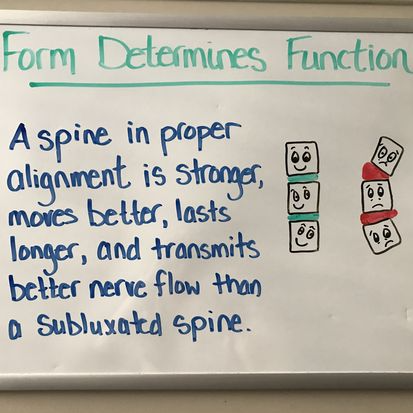 Form Determines Function
A spine in proper
alignment is stronger,
moves better, lasts
longer, and transmits
better nerve flow than
a subluxated spine.